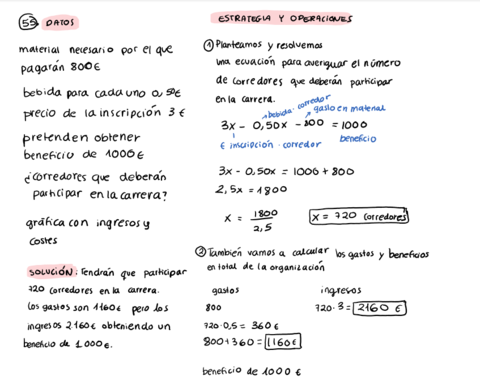 55 DATOS
material necesario por el que
pagarán 800€
bebida para cada uno 0,50€
precio de la inscripción 3 €
pretenden obtener
beneficio de 1000€
¿Corredores que deberán
participar en la carrera?
gráfica con ingresos y
costes
SOLUCIÓN: Tendrán que participar
720 corredores en la carrera.
Los gastos son 1160€ pero los
ingresos 2160€ obteniendo un
beneficio de 1.000€.
ESTRATEGIA Y OPERACIONES
1 Planteamos y resolvemos
una ecuación para averiguar el número
de corredores que deberán participar
en la carrera.
bebida · corredor
gasto en material
3x - 0,50x - 800 = 1000
€ inscripción · corredor
beneficio
3x - 0,50x = 1000 + 800
2,5x = 1800
x = 1800 / 2,5
x = 720 corredores
2 También vamos a calcular los gastos y beneficios
en total de la organización
gastos ingresos
800 720·3 = 2160 €
720·0,5 = 360 €
800+360 = 1160 €
beneficio de 1000 €